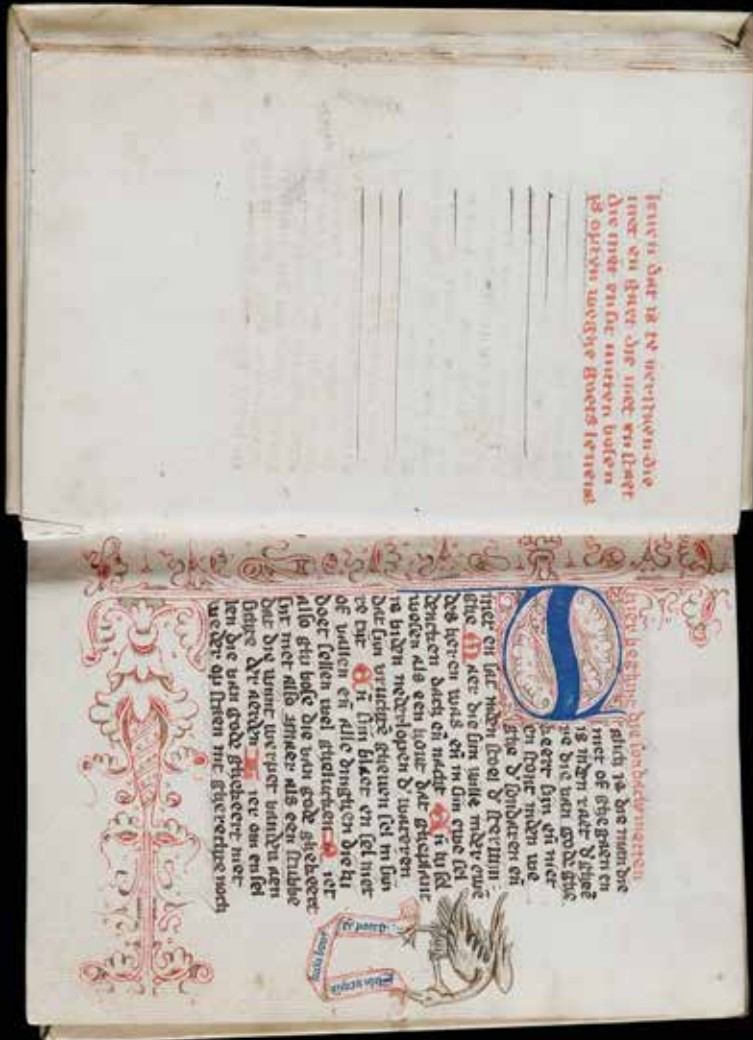 leuen dat is te
niet en gaet die niet en staet
die niet ensit mitten bosen
is opten weghe goets leuens
beghint die sondachs metten
Salich is die man die
niet of ghegaen en
is inden raet d' ghee
re die van gode ghe
keert sijn eñ niet
en stont inden we
ghe d' sondaren eñ
niet en sat inden stoel d'
ghe Maer die sijn wille inder ewe
des heren was eñ in sijn ewe sel
dencken dach eñ nacht Eñ hi sel
wesen als een hout dat gheplant
is biden nederlopen d' wateren
dat sijn vruchte gheuen sel in sijn
re tijt Eñ sijn blaet en sel niet
of vallen eñ alle dinghen die hi
doet sellen wel ghelucken
also ghi bose die van gode ghekeert
sijt niet also als een stubbe
dat die wint werpet vanden aen
sichte der aerden Hier om en sel
len die van gode ghekeert niet
weder op staen int gherechte noch